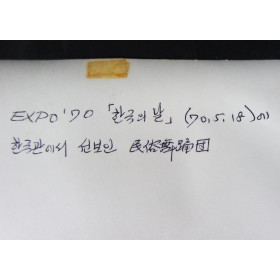 EXPO '70 「한국의 날」 (70.5.18)에
한국관에서 선보인 民俗舞踊団